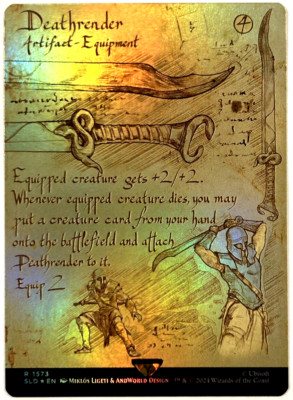 Deathrender
4
Artifact - Equipment
Equipped creature gets +2/+2.
Whenever equipped creature dies, you may
put a creature card from your hand
onto the battlefield and attach
Deathrender to it.
Equip 2
R 1573
SLD ★ EN MIKLÓS LIGETI & ANDWORLD DESIGN
© Ubisoft.
™ & © 2024 Wizards of the Coast